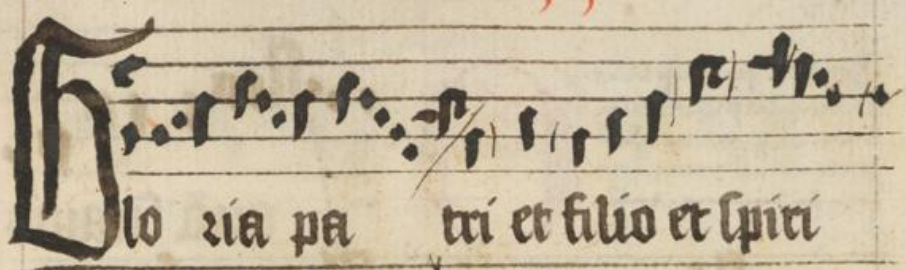 Glo ria pa tri et filio et spiri